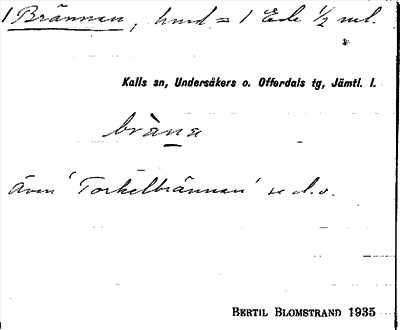 1 Brännan, hmd = 1 Ede ½ ml.
Kalls sn, Undersåkers o. Offerdals tg, Jämtl. l.
bràna
även 'Torkelbrännan' se d. o.
BERTIL BLOMSTRAND 1935